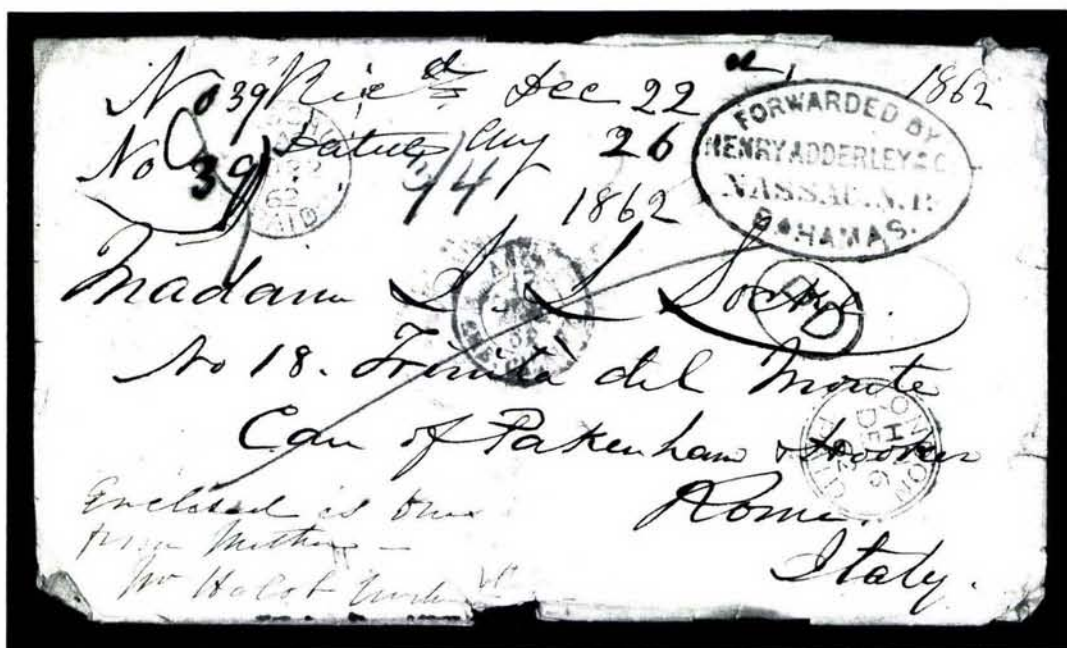 No 39 Rec'd Dec 22 1862
No 39 Dated Aug 26
34
1862
FORWARDED BY
HENRY ADDERLEY & C
NASSAU. N. P.
BAHAMAS.
Madam S. L.
PD
No 18. Trinita del Monte
Care of Pakenham & Hooker
Rome.
Italy.
LONDON
H
DE 6
62
PAID
PAID
Enclosed is one
from Mother